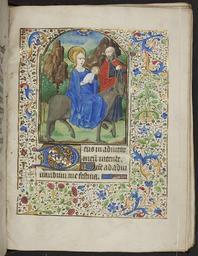 Deus in adiutor
ium meum intende.
Domine ad adiu
vandum me festina.